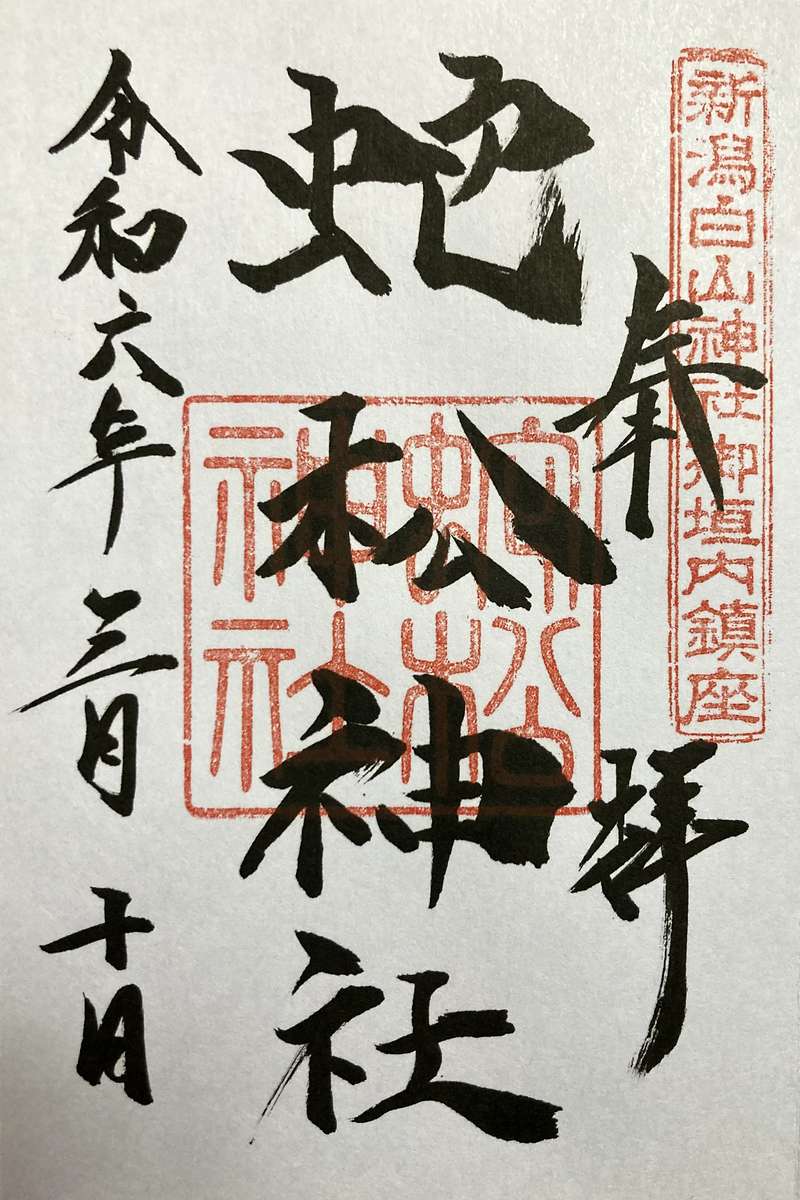 新潟白山神社御垣内鎮座
奉拝
蛇松神社
蛇松
神社
令和六年 三月 十日